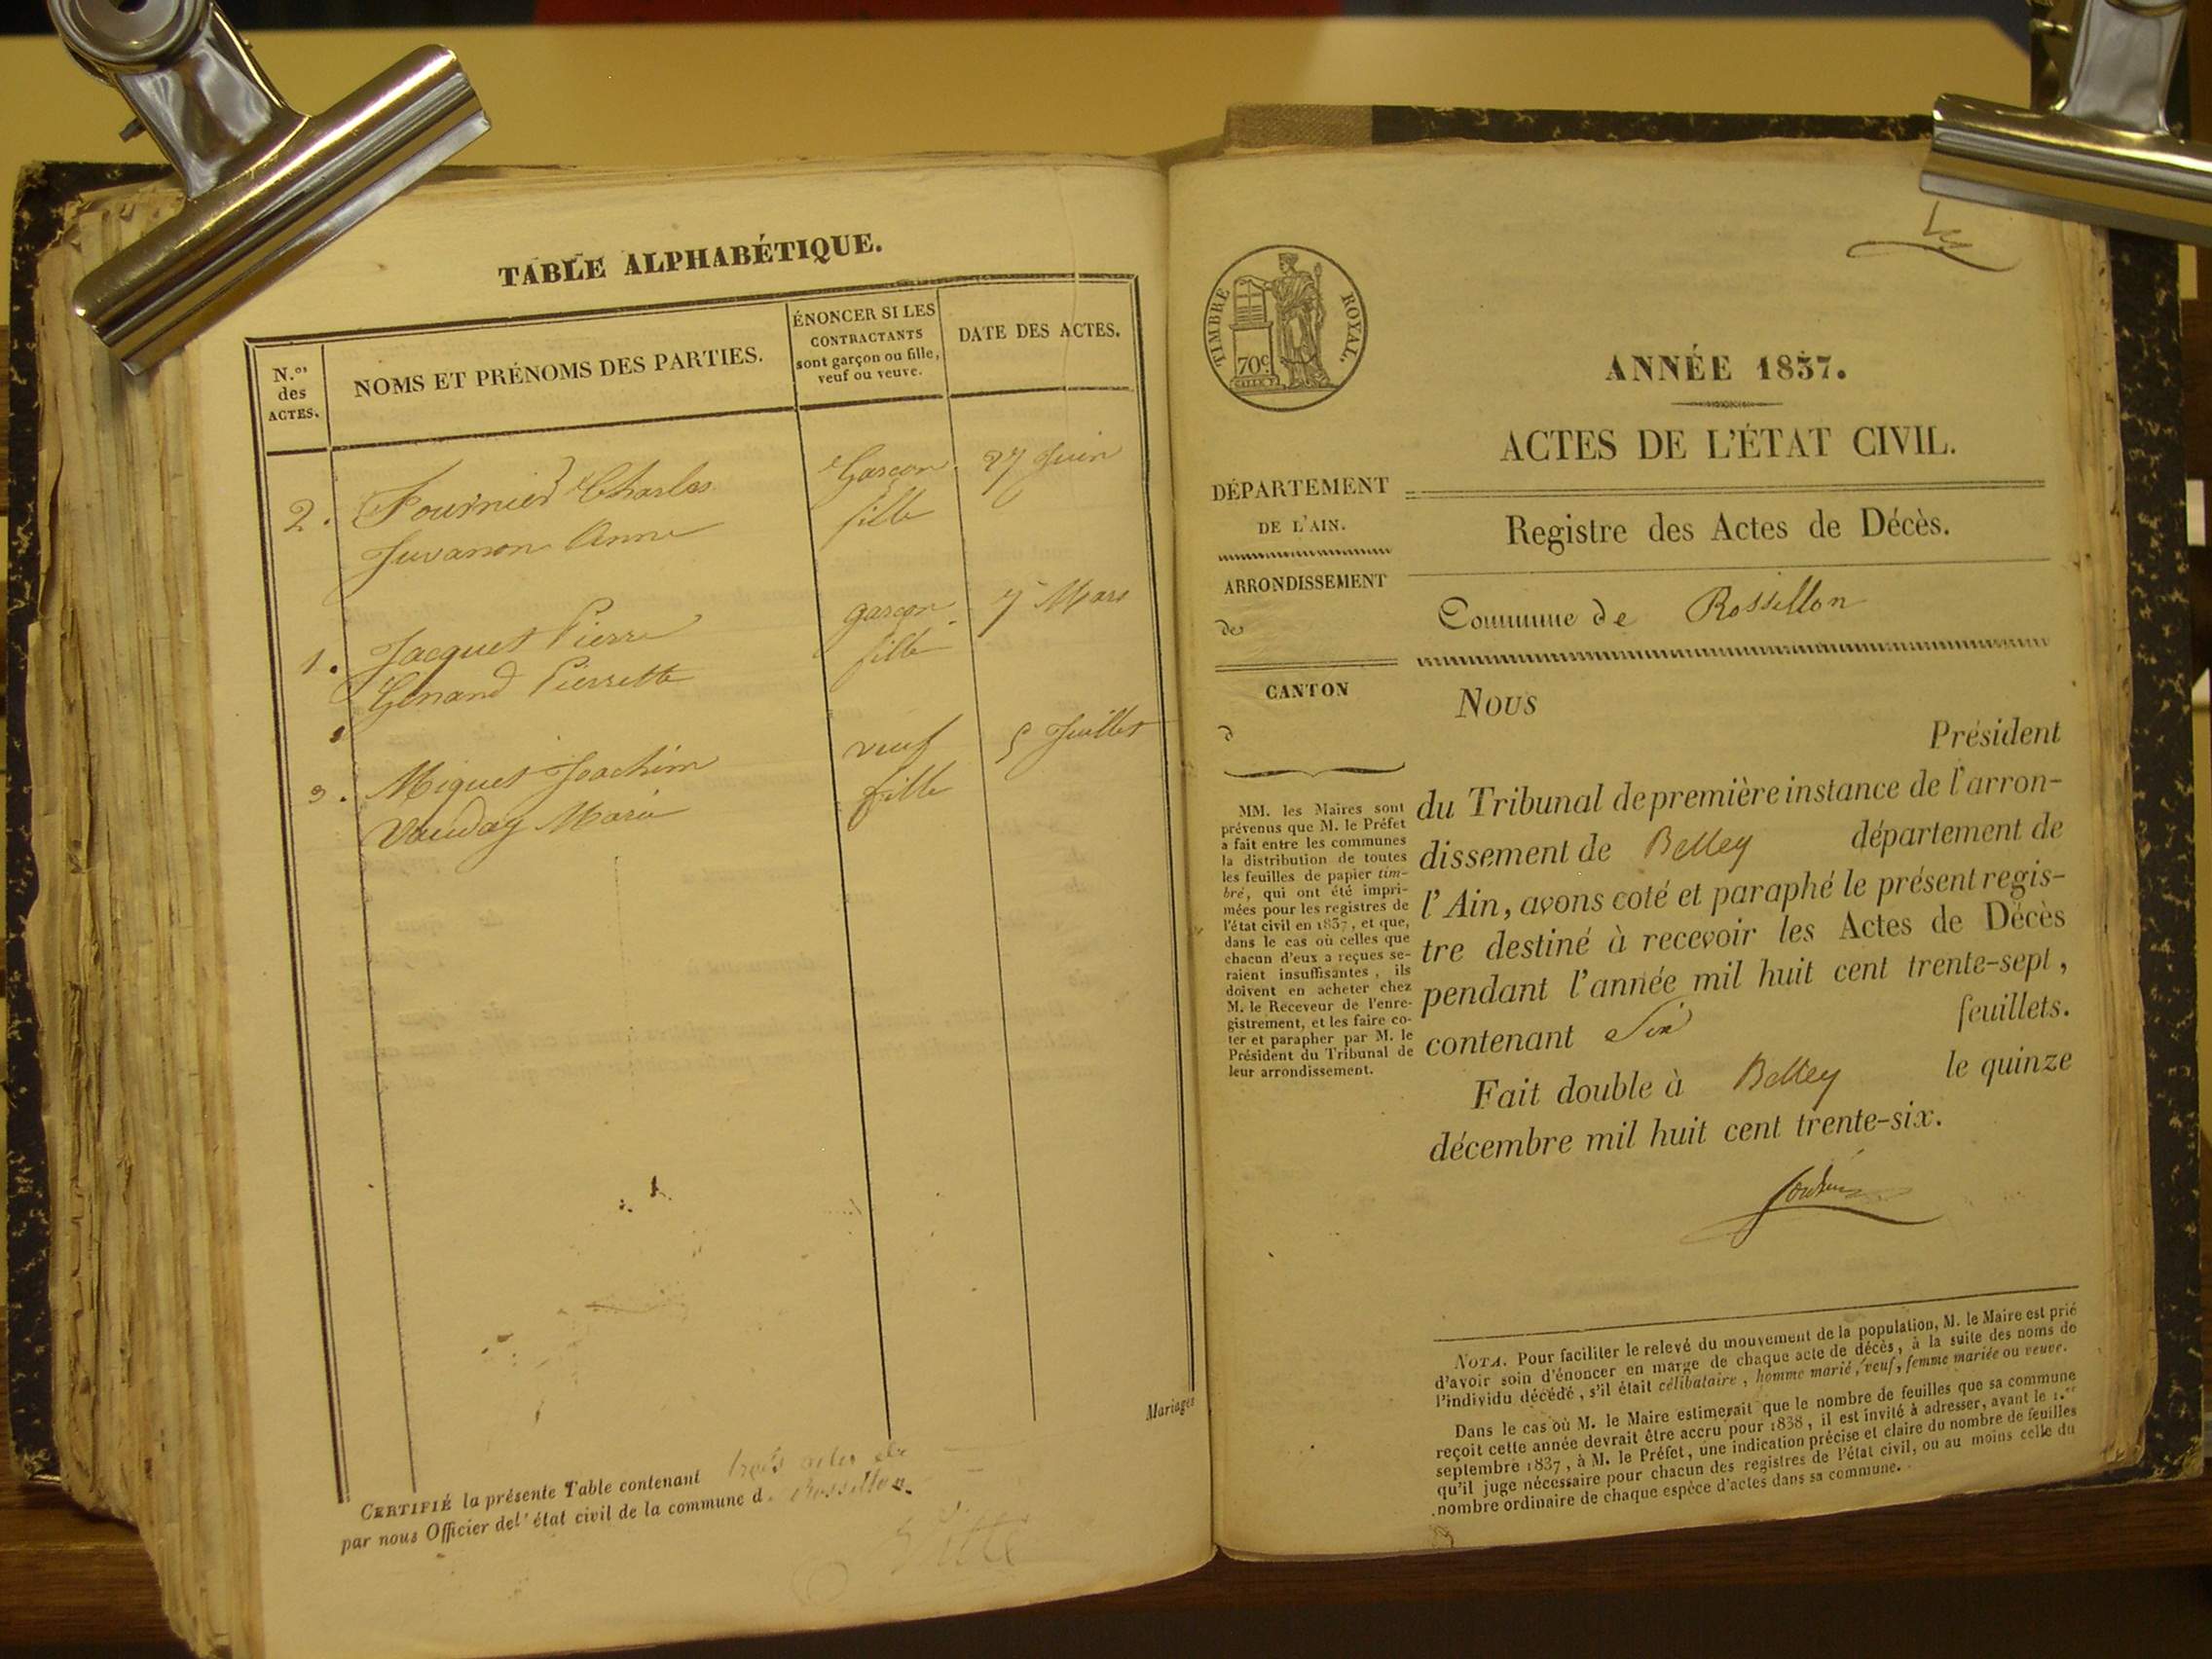 TABLE ALPHABÉTIQUE.
N.os
des
ACTES.
NOMS ET PRÉNOMS DES PARTIES.
ÉNONCER SI LES
CONTRACTANTS
sont garçon ou fille,
veuf ou veuve.
DATE DES ACTES.
2. Fournier Charles Garçon 27 Juin
Juvanon Anne fille
1. Jacquet Pierre garçon 7 Mars
Genand Pierrette fille
3. Miguet Joachim veuf 5 Juillet
Vauday Marie fille
Mariages
CERTIFIÉ la présente Table contenant trois actes de
par nous Officier de l'état civil de la commune d. Rossillon.
TIMBRE ROYAL.
70c
ANNÉE 1837.
ACTES DE L'ÉTAT CIVIL.
DÉPARTEMENT
DE L'AIN.
Registre des Actes de Décès.
ARRONDISSEMENT
de
Commune de Rossillon
CANTON
d
MM. les Maires sont
prévenus que M. le Préfet
a fait entre les communes
la distribution de toutes
les feuilles de papier tim-
bré, qui ont été impri-
mées pour les registres de
l'état civil en 1837, et que,
dans le cas où celles que
chacun d'eux a reçues se-
raient insuffisantes, ils
doivent en acheter chez
M. le Receveur de l'enre-
gistrement, et les faire co-
ter et parapher par M. le
Président du Tribunal de
leur arrondissement.
Nous
Président
du Tribunal de première instance de l'arron-
dissement de Belley département de
l'Ain, avons coté et paraphé le présent regis-
tre destiné à recevoir les Actes de Décès
pendant l'année mil huit cent trente-sept,
contenant Six feuillets.
Fait double à Belley le quinze
décembre mil huit cent trente-six.
NOTA. Pour faciliter le relevé du mouvement de la population, M. le Maire est prié
d'avoir soin d'énoncer en marge de chaque acte de décès, à la suite des noms de
l'individu décédé, s'il était célibataire, homme marié, veuf, femme mariée ou veuve.
Dans le cas où M. le Maire estimerait que le nombre de feuilles que sa commune
reçoit cette année devrait être accru pour 1838, il est invité à adresser, avant le 1.er
septembre 1837, à M. le Préfet, une indication précise et claire du nombre de feuilles
qu'il juge nécessaire pour chacun des registres de l'état civil, ou au moins celle du
nombre ordinaire de chaque espèce d'actes dans sa commune.